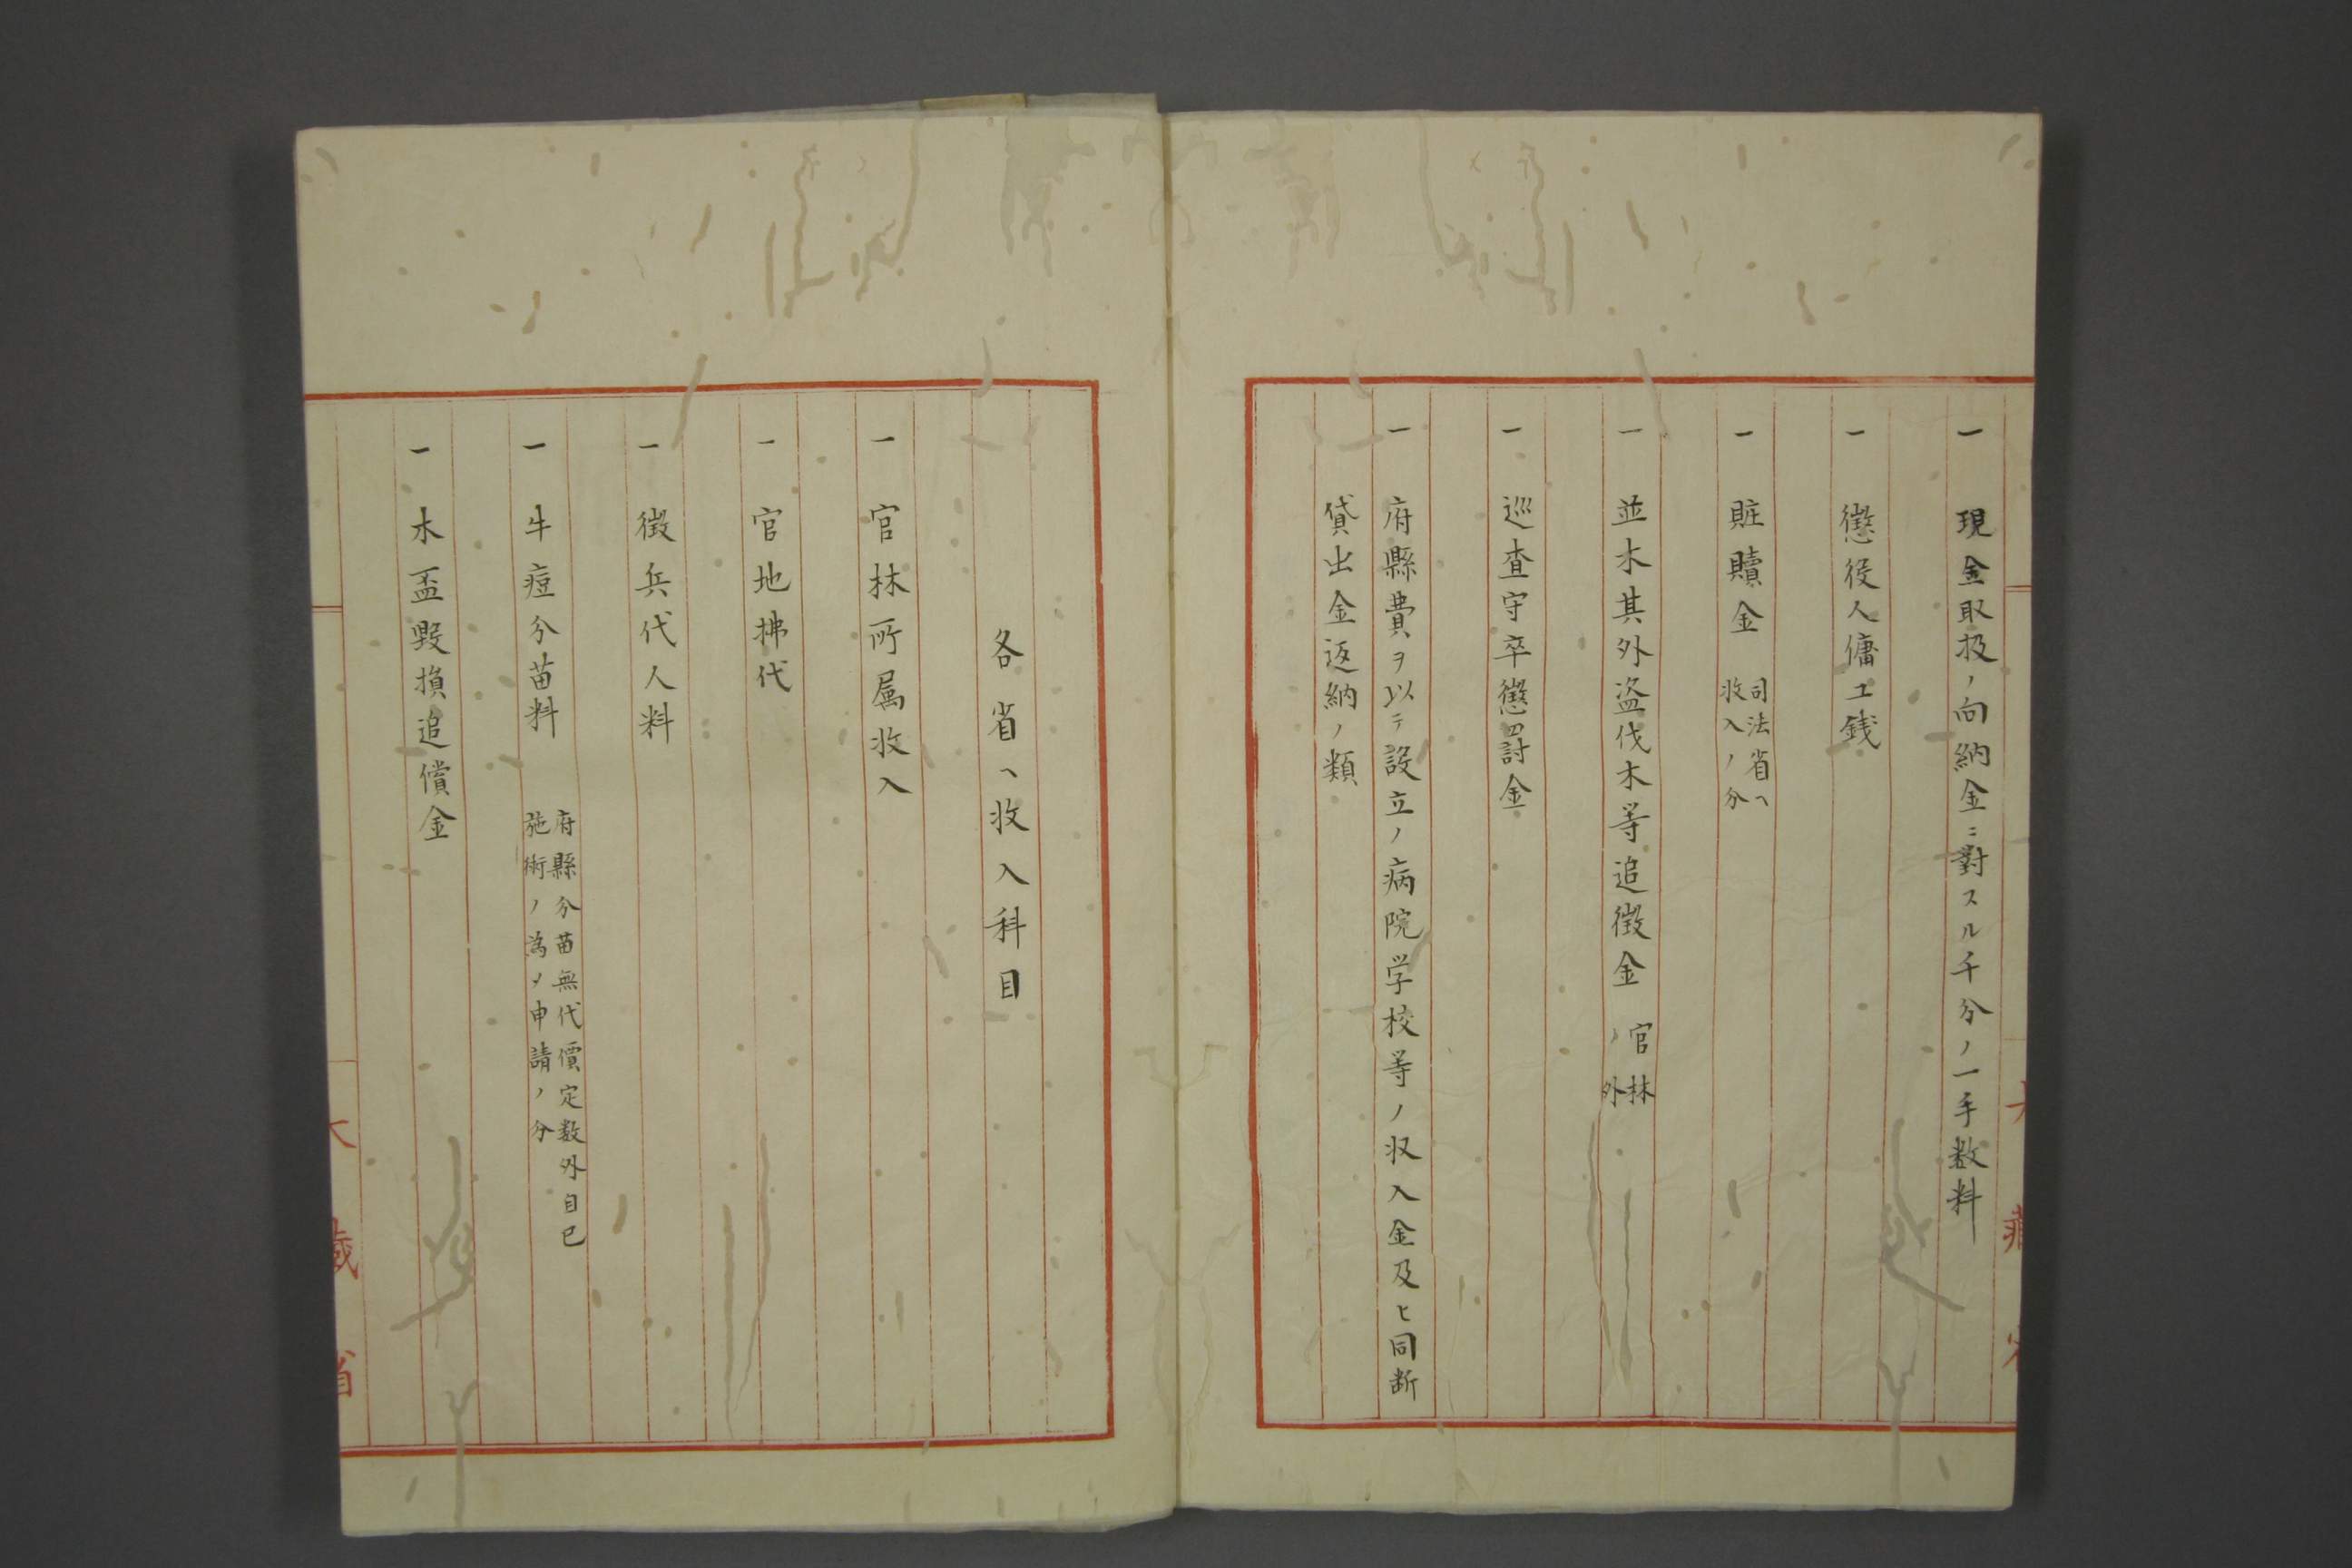 一 現金取扱ノ向納金ニ對スル千分ノ一手数料
一 懲役人傭工銭
一 贓贖金 司法省ヘ
收入ノ分
一 並木其外盗伐木等追徴金 官林
ノ外
一 巡査守卒懲罰金
一 府縣費ヲ以テ設立ノ病院学校等ノ収入金及ヒ同断
貸出金返納ノ類
各省ヘ收入科目
一 官林所属收入
一 官地拂代
一 徴兵代人料
一 牛痘分苗料 府縣分苗無代價定数外自己
施術ノ為メ申請ノ分
一 木盃毀損追償金
大藏省